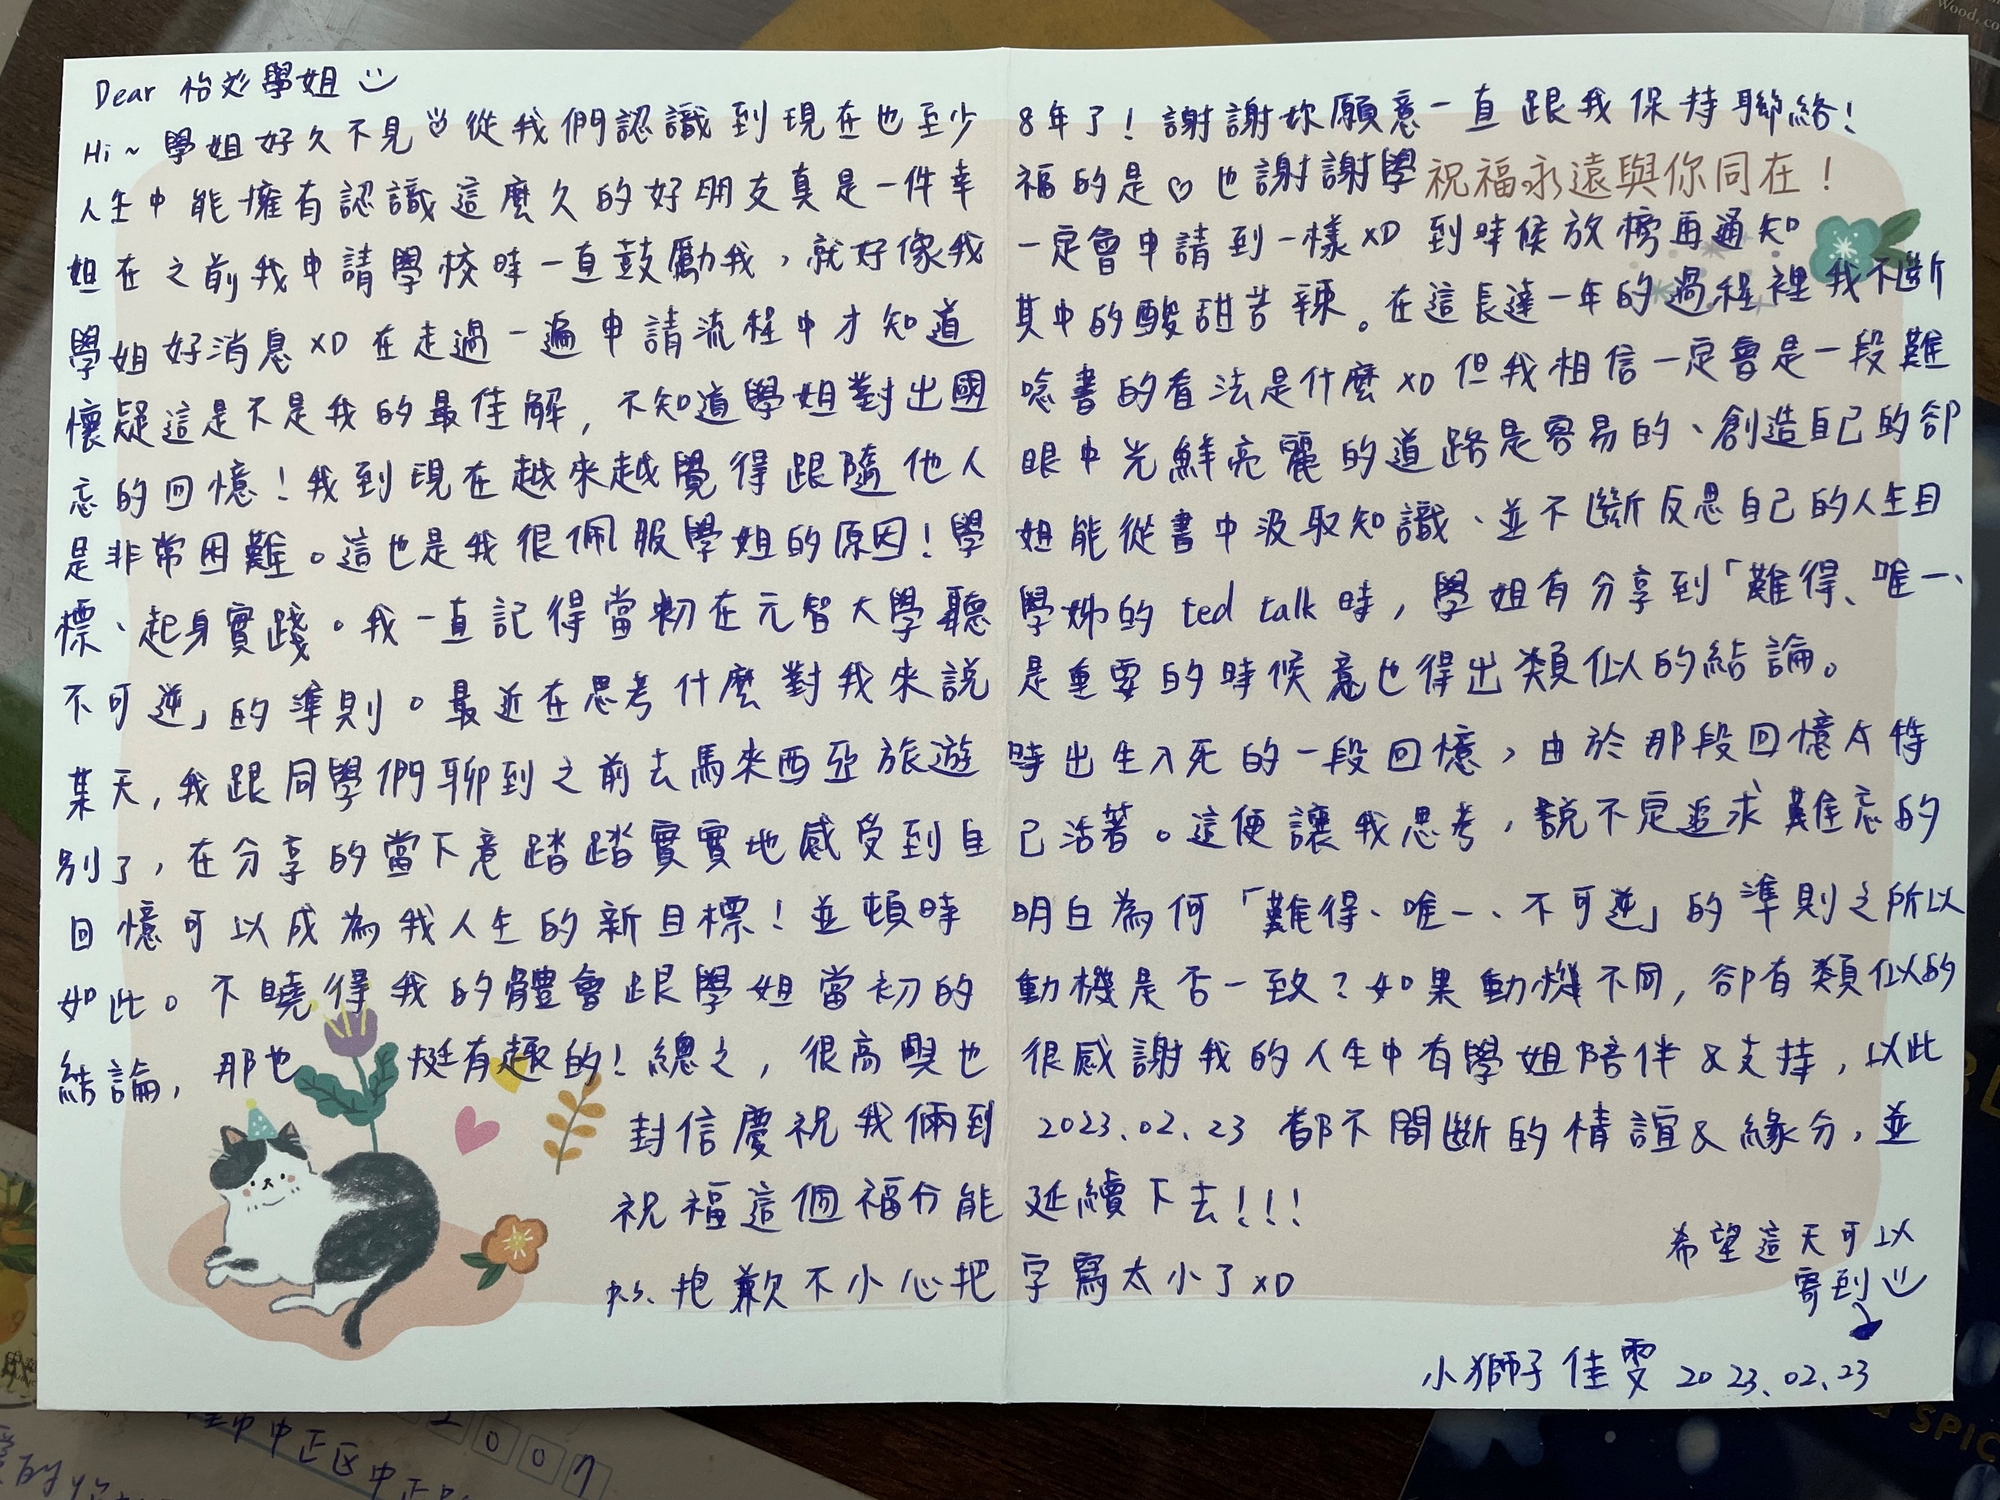 Dear 怡彣學姐
Hi~ 學姐好久不見♡從我們認識到現在也至少8年了！謝謝妳願意一直跟我保持聯絡！
人生中能擁有認識這麼久的好朋友真是一件幸福的是♡也謝謝學
祝福永遠與你同在！
姐在之前我申請學校時一直鼓勵我，就好像我一定會申請到一樣XD 到時候放榜再通知
學姐好消息XD 在走過一遍申請流程中才知道其中的酸甜苦辣。在這長達一年的過程裡我不斷
懷疑這是不是我的最佳解，不知道學姐對出國唸書的看法是什麼XD 但我相信一定會是一段難
忘的回憶！我到現在越來越覺得跟隨他人眼中光鮮亮麗的道路是容易的、創造自己的卻
是非常困難。這也是我很佩服學姐的原因！學姐能從書中汲取知識、並不斷反思自己的人生目
標、起身實踐。我一直記得當初在元智大學聽學姊的 ted talk 時，學姐有分享到「難得、唯一、
不可逆」的準則。最近在思考什麼對我來說是重要的時候竟也得出類似的結論。
某天，我跟同學們聊到之前去馬來西亞旅遊時出生入死的一段回憶，由於那段回憶太特
別了，在分享的當下竟踏踏實實地感受到自己活著。這便讓我思考，說不定追求難忘的
回憶可以成為我人生的新目標！並頓時明白為何「難得、唯一、不可逆」的準則之所以
如此。不曉得我的體會跟學姐當初的動機是否一致？如果動機不同，卻有類似的
結論，那也挺有趣的！總之，很高興也很感謝我的人生中有學姐陪伴&支持，以此
封信慶祝我倆到2023.02.23 都不間斷的情誼&緣分，並
祝福這個福份能延續下去！！！
p.s. 抱歉不小心把字寫太小了XD
希望這天可以
寄到
小獅子 佳雯 2023.02.23
Wood, co
2007
中正区中正路
SPIC